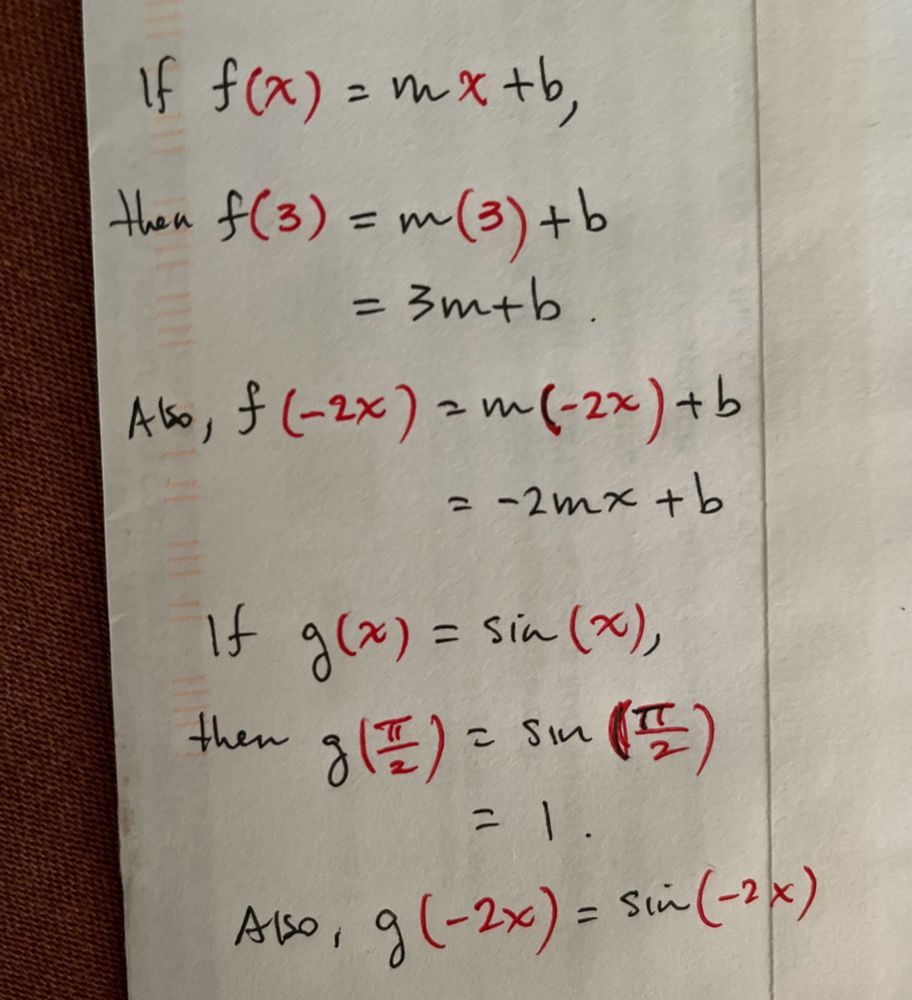 If f(x) = mx + b,
then f(3) = m(3) + b
= 3m + b .
Also, f(-2x) = m(-2x) + b
= -2mx + b
If g(x) = sin(x),
then g(π/2) = sin(π/2)
= 1 .
Also, g(-2x) = sin(-2x)